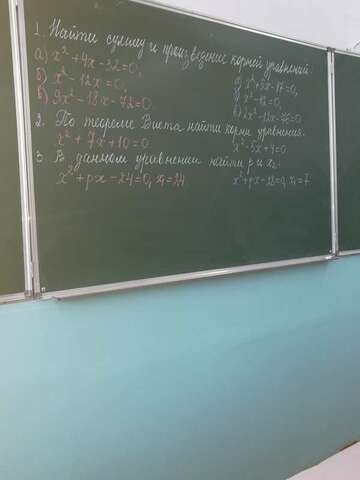 1. Найти сумму и произведение корней уравнений:
а) x² + 4x - 32 = 0,
б) x² - 12x = 0,
в) 9x² - 18x - 72 = 0
x² - 12 = 0,
2. По теореме Виета найти корни уравнения.
x² + 7x + 10 = 0 x² - 5x + 4 = 0
3 В данном уравнении найти p и x₂.
x² + px - 24 = 0, x₁ = 24 x² + px - 28 = 0, x₁ = 7